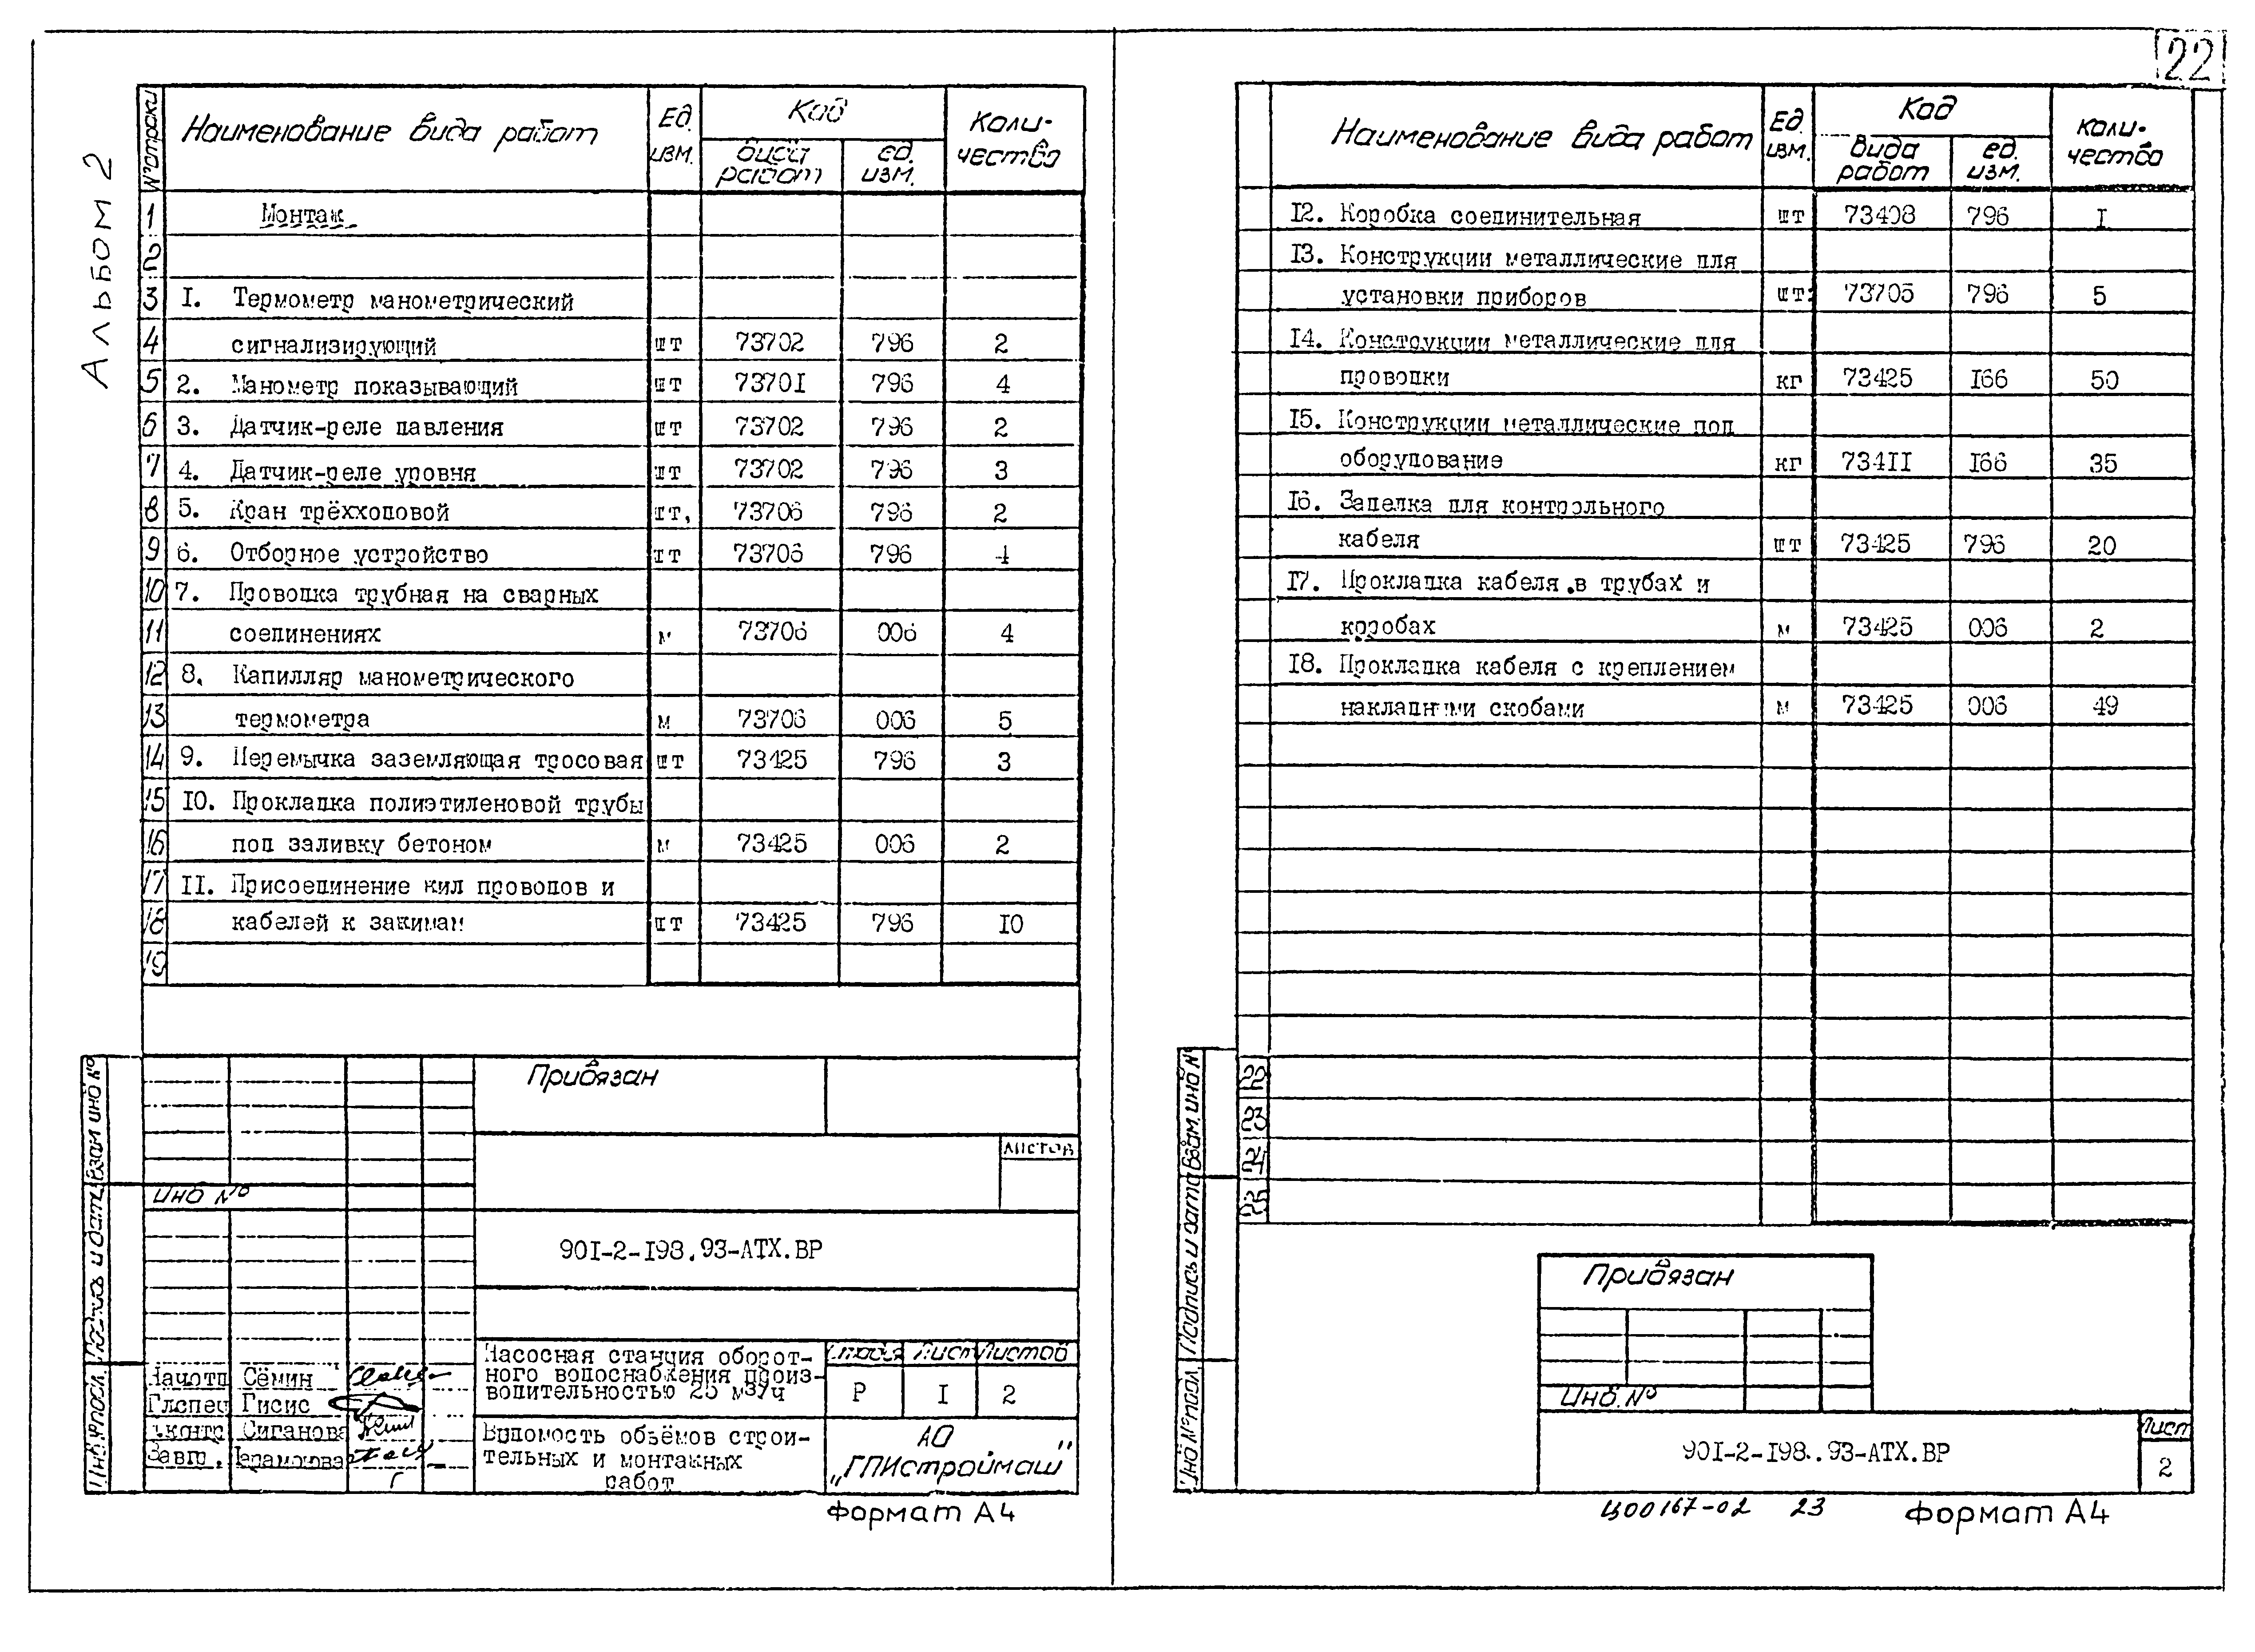 22
АЛЬБОМ 2
№ строки Наименование вида работ Ед. изм. Код Коли-чество
вида работ ед. изм.
1 Монтаж
2
3 1. Термометр манометрический
4 сигнализирующий шт 73702 796 2
5 2. Манометр показывающий шт 73701 796 4
6 3. Датчик-реле давления шт 73702 796 2
7 4. Датчик-реле уровня шт 73702 796 3
8 5. Кран трёхходовой шт, 73706 796 2
9 6. Отборное устройство шт 73706 796 4
10 7. Проводка трубная на сварных
11 соединениях м 73706 006 4
12 8. Капилляр манометрического
13 термометра м 73706 006 5
14 9. Перемычка заземляющая тросовая шт 73425 796 3
15 10. Прокладка полиэтиленовой трубы
16 под заливку бетоном м 73425 006 2
17 11. Присоединение жил проводов и
18 кабелей к зажимам шт 73425 796 10
19
Привязан
листов
Инв №
901-2-198.93-АТХ.ВР
Насосная станция оборот-
ного водоснабжения произ-
водительностью 25 м3/ч
Стадия Лист Листов
Р 1 2
Начотд Сёмин
Глспец Гисис
Н.контр Сиганова
Завгр.
Ведомость объёмов строи-
тельных и монтажных
работ
АО
„ГПИстроймаш"
Инв № подл. Подпись и дата Взам инв №
Формат А4
Наименование вида работ Ед. изм. Код Коли-чество
вида работ ед. изм.
12. Коробка соединительная шт 73408 796 1
13. Конструкции металлические для
установки приборов шт. 73705 796 5
14. Конструкции металлические для
проводки кг 73425 166 50
15. Конструкции металлические под
оборудование кг 73411 166 35
16. Заделка для контрольного
кабеля шт 73425 796 20
17. Прокладка кабеля в трубах и
коробах м 73425 006 2
18. Прокладка кабеля с креплением
накладными скобами м 73425 006 49
22
23
24
25
Инв № подл. Подпись и дата Взам. инв №
Привязан
Инв. №
901-2-198..93-АТХ.ВР
Лист
2
Ц00167-02 23
Формат А4